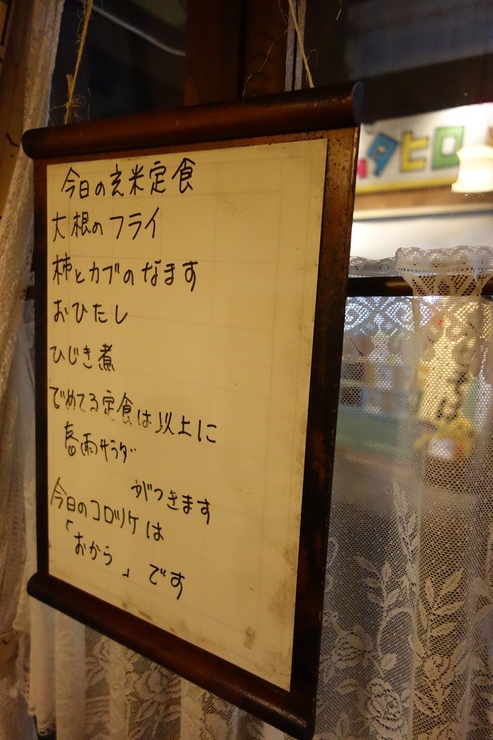 今日の玄米定食
大根のフライ
柿とカブのなます
おひたし
ひじき煮
でめてる定食は以上に
春雨サラダ
がつきます
今日のコロッケは
「おから」です
タヒロ